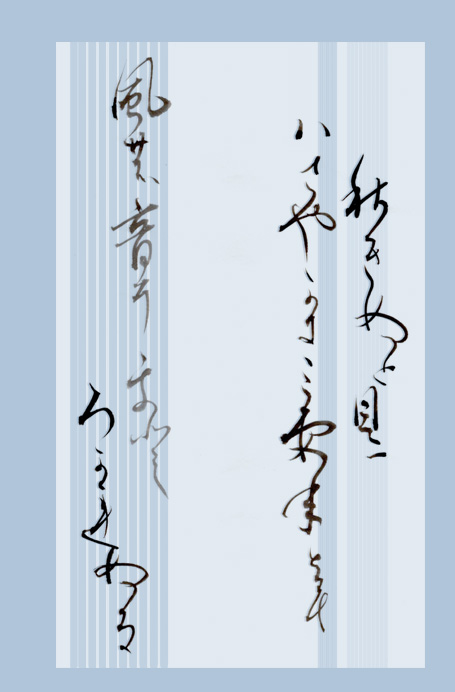 秋きぬと目に
ハさやかに見えねども
風の音にぞおど
ろかれぬる